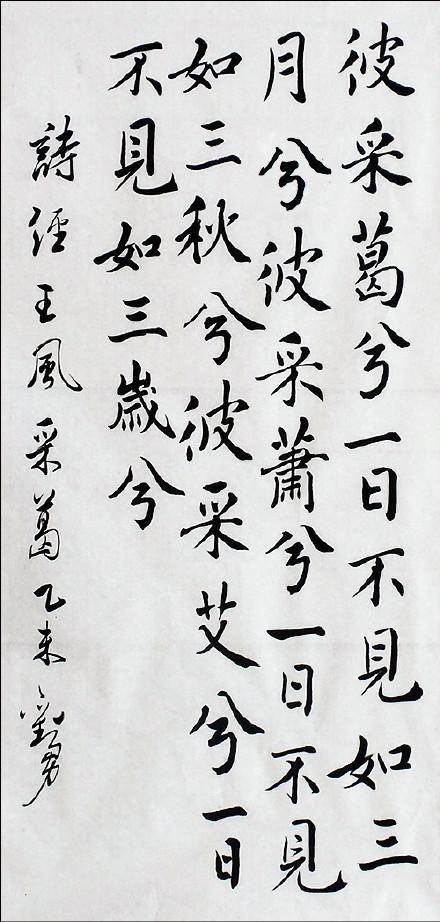 彼采葛兮一日不見如三
月兮彼采蕭兮一日不見
如三秋兮彼采艾兮一日
不見如三歲兮
詩經王風采葛乙未劉勇